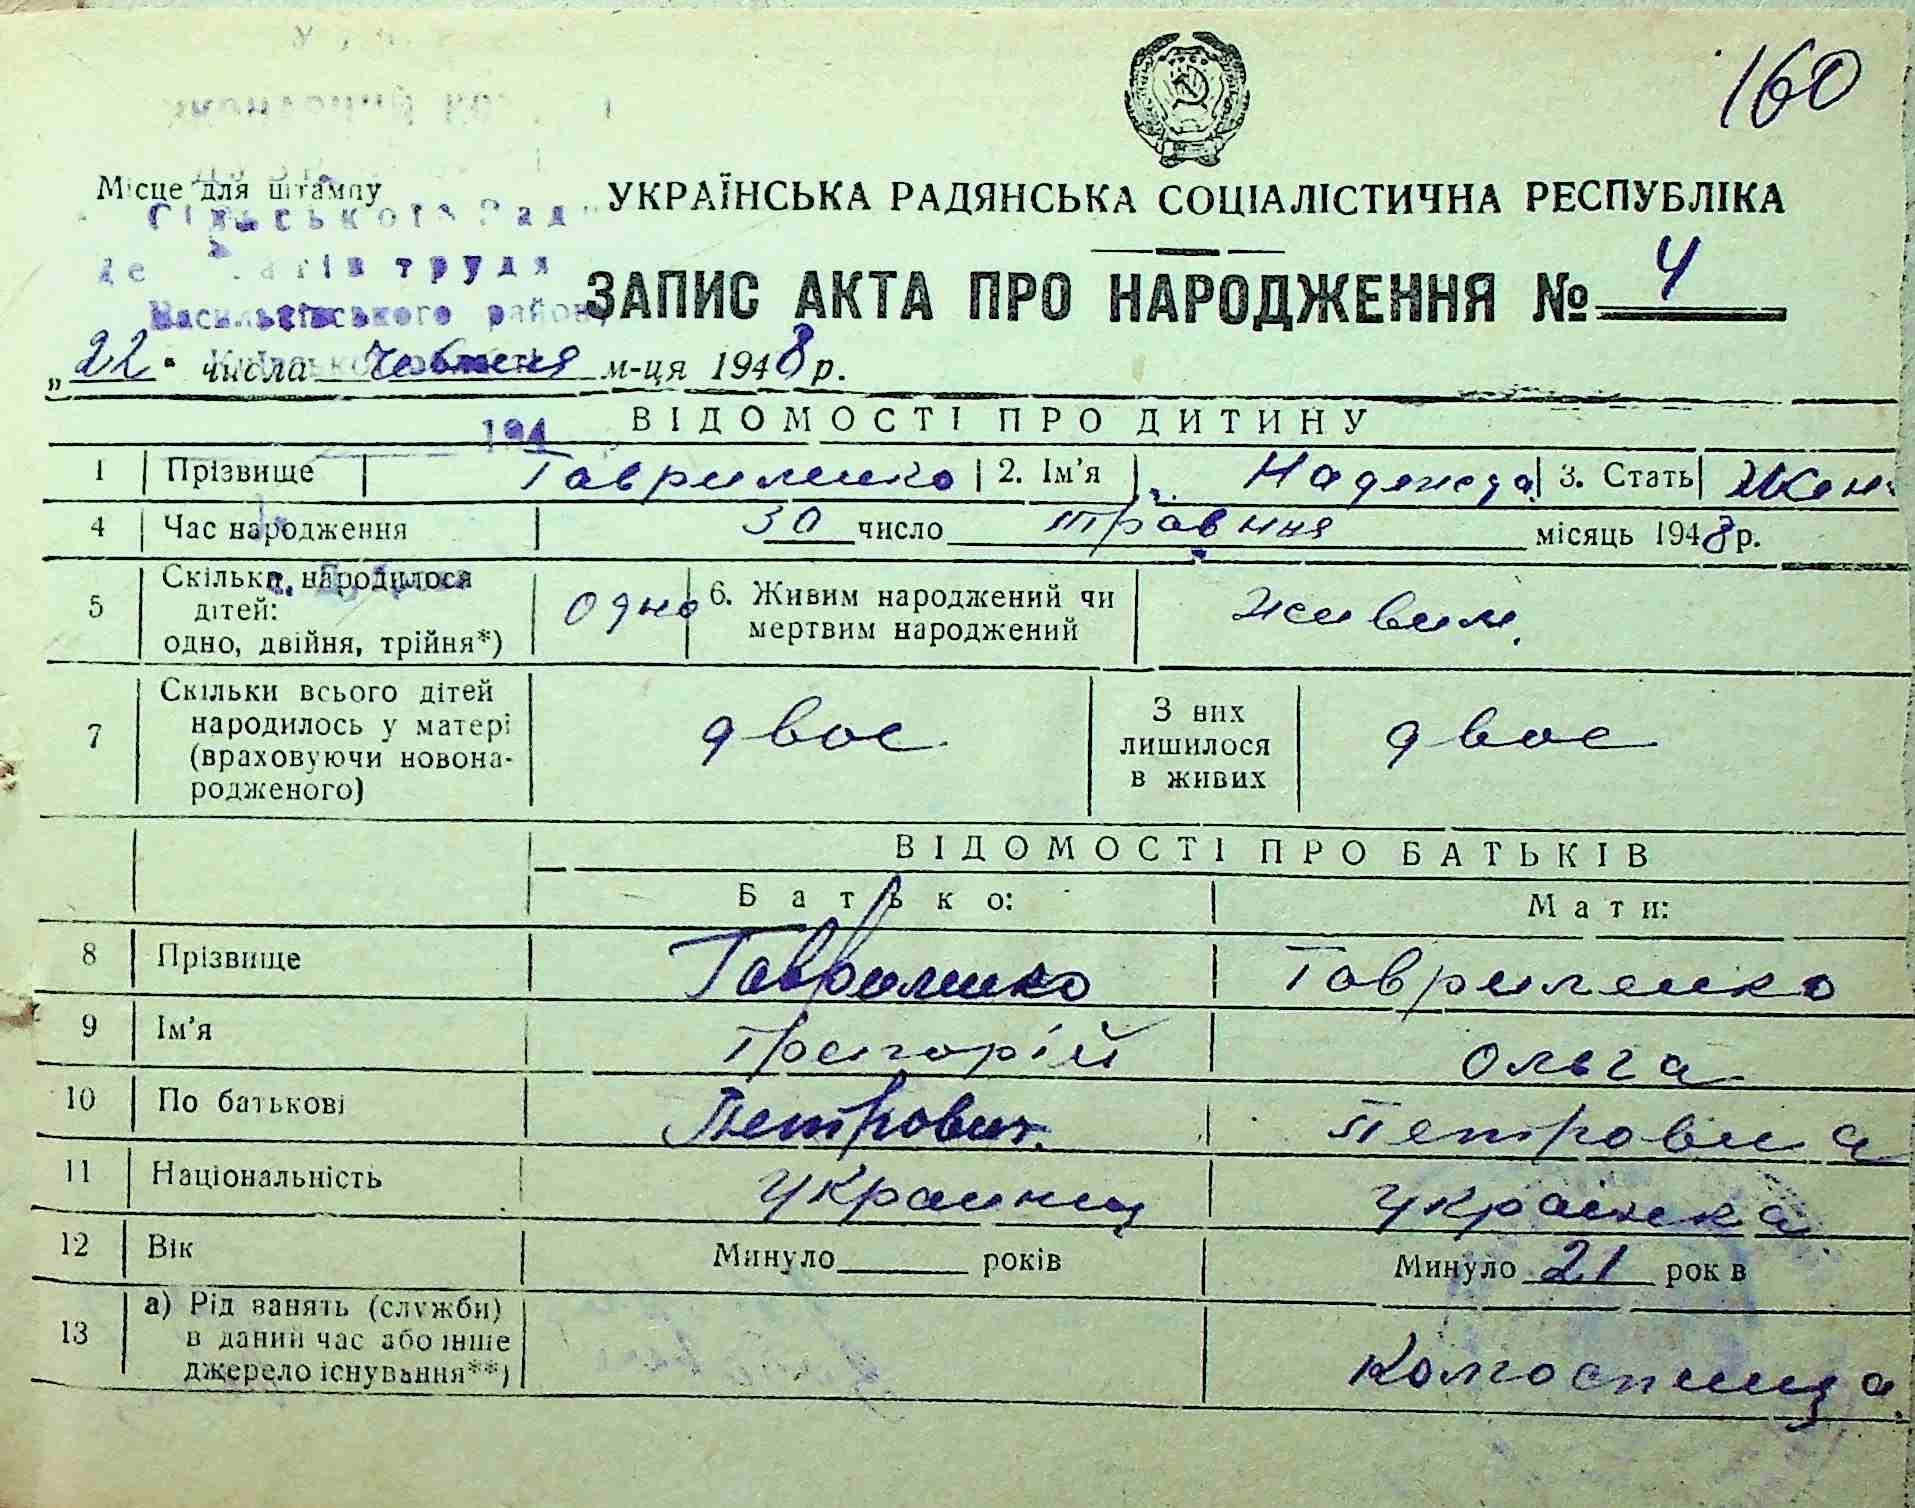 160
Місце для штампу
УКРАЇНСЬКА РАДЯНСЬКА СОЦІАЛІСТИЧНА РЕСПУБЛІКА
Сільської Рад
трудя
Васильківського району
ЗАПИС АКТА ПРО НАРОДЖЕННЯ № 4
„22" числа Червня м-ця 1948 р.
194
ВІДОМОСТІ ПРО ДИТИНУ
1 Прізвище Гавриленко 2. Ім'я Надежда 3. Стать Жен.
4 Час народження 30 число травня місяць 1948 р.
5 Скільки народилося дітей: одно, двійня, трійня*) одно 6. Живим народжений чи мертвим народжений живим.
7 Скільки всього дітей народилось у матері (враховуючи новонародженого) двоє З них лишилося в живих двоє
ВІДОМОСТІ ПРО БАТЬКІВ
Батько: Мати:
8 Прізвище Гавриленко Гавриленко
9 Ім'я Григорій Ольга
10 По батькові Петрович. Петровна
11 Національність украинец українка
12 Вік Минуло років Минуло 21 рок в
13 а) Рід занять (служби) в даний час або інше джерело існування**) колгоспниця